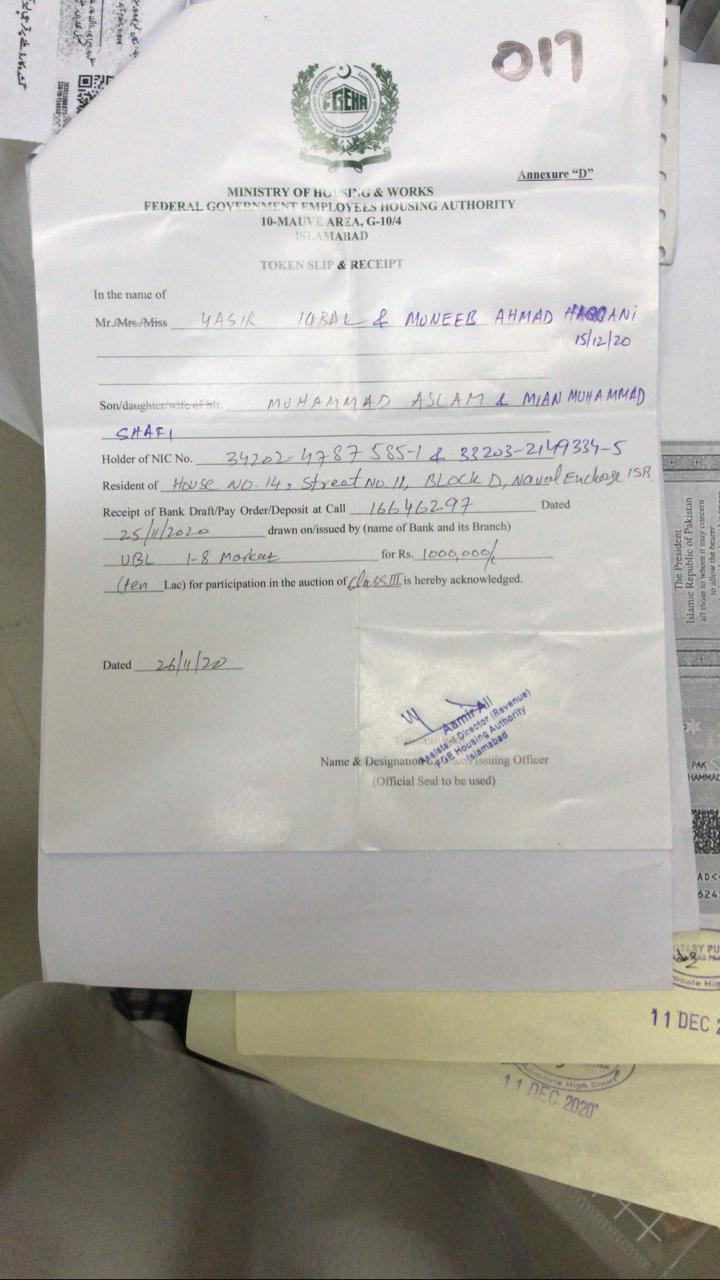 017
FGEHA
Annexure “D”
MINISTRY OF HOUSING & WORKS
FEDERAL GOVERNMENT EMPLOYEES HOUSING AUTHORITY
10-MAUVE AREA, G-10/4
ISLAMABAD
TOKEN SLIP & RECEIPT
In the name of
Mr./Mrs./Miss YASIR IQBAL & MUNEEB AHMAD HAQQANI
15/12/20
Son/daughter/wife of Mr. MUHAMMAD ASLAM & MIAN MUHAMMAD
SHAFI
Holder of NIC No. 34202-4787585-1 & 33203-2149334-5
Resident of House No. 14, Street No. 11, BLOCK D, Naval Enchorge ISB
Receipt of Bank Draft/Pay Order/Deposit at Call 16646297 Dated
25/11/2020 drawn on/issued by (name of Bank and its Branch)
UBL I-8 Markat for Rs. 1000,000/-
(ten Lac) for participation in the auction of Class III is hereby acknowledged.
Dated 26/11/20
Aamir Ali
Assistant Director (Revenue)
FGE Housing Authority
Islamabad
Name & Designation issuing Officer
(Official Seal to be used)
The President
Islamic Republic of Pakistan
all those to whom it may concern
to allow the bearer
PAK
HAMMAD
AD<
624
11 DEC 2
Advocate High Court
11 DEC 2020